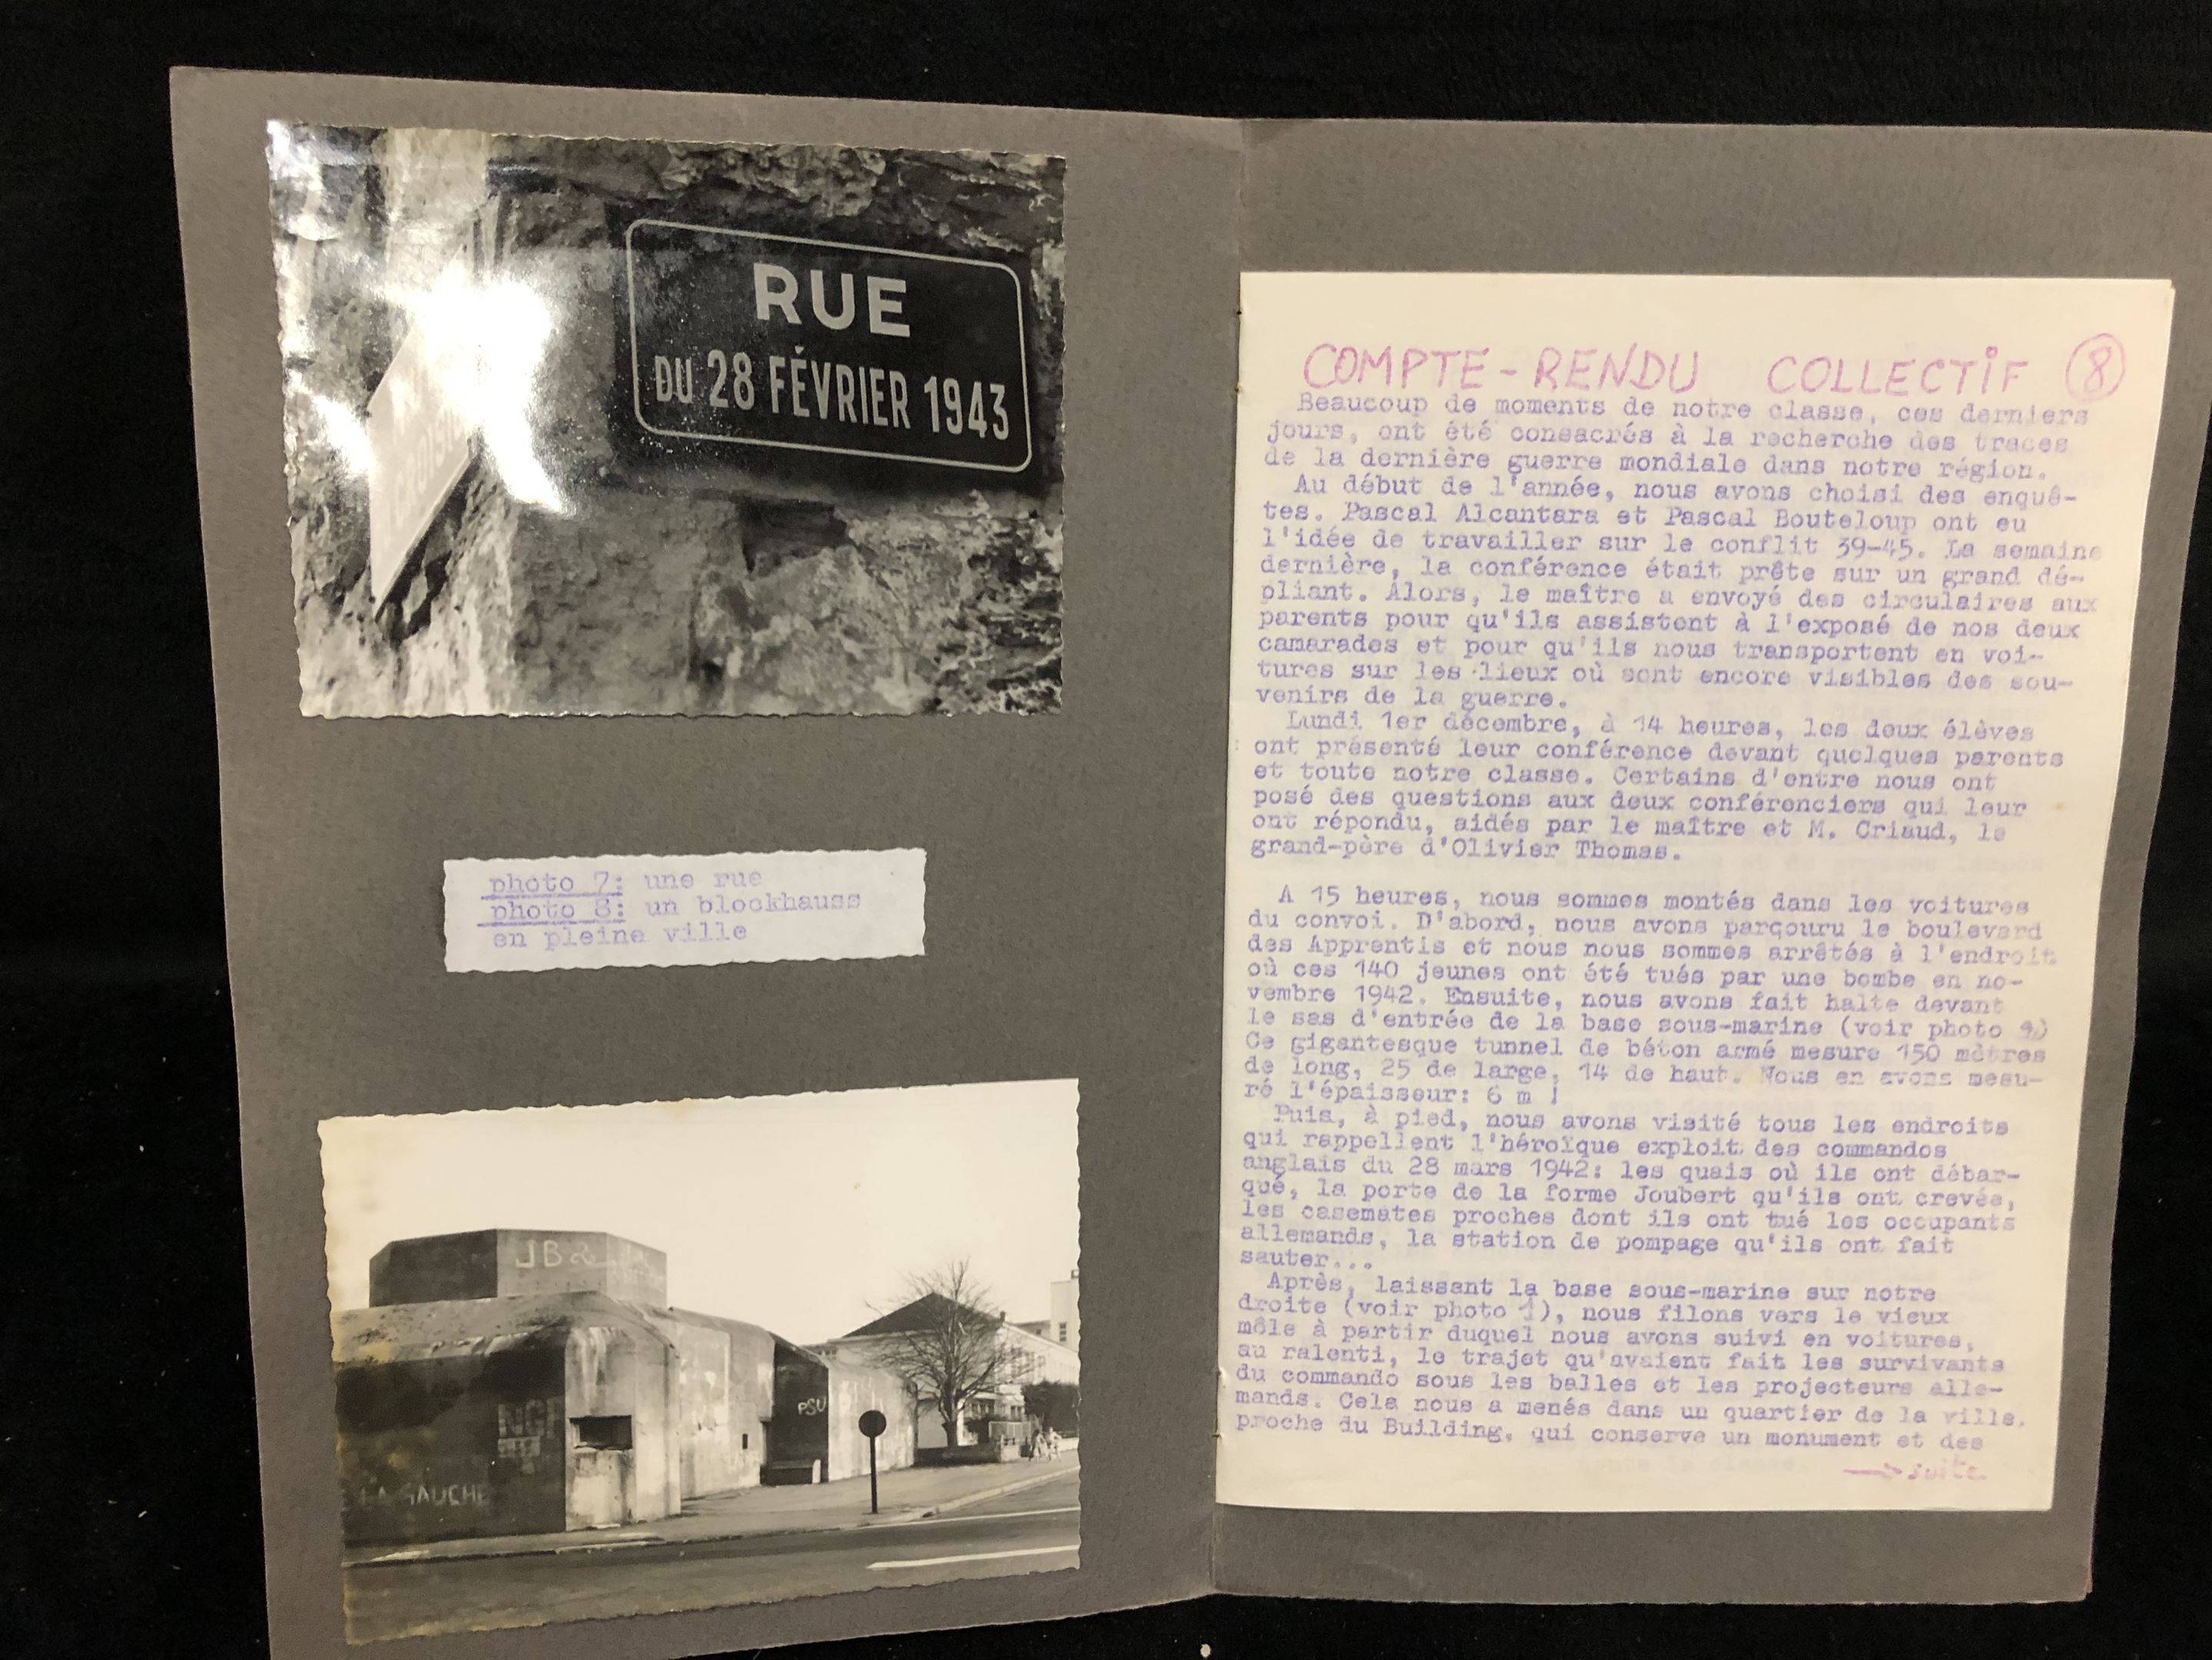 RUE
DU 28 FÉVRIER 1943
photo 7: une rue
photo 8: un blockhauss
en pleine ville
JB
PSU
LA GAUCHE
COMPTE-RENDU COLLECTIF 8
Beaucoup de moments de notre classe, ces derniers
jours, ont été consacrés à la recherche des traces
de la dernière guerre mondiale dans notre région.
Au début de l'année, nous avons choisi des enquê-
tes. Pascal Alcantara et Pascal Bouteloup ont eu
l'idée de travailler sur le conflit 39-45. La semaine
dernière, la conférence était prête sur un grand dé-
pliant. Alors, le maître a envoyé des circulaires aux
parents pour qu'ils assistent à l'exposé de nos deux
camarades et pour qu'ils nous transportent en voi-
tures sur les lieux où sont encore visibles des sou-
venirs de la guerre.
Lundi 1er décembre, à 14 heures, les deux élèves
ont présenté leur conférence devant quelques parents
et toute notre classe. Certains d'entre nous ont
posé des questions aux deux conférenciers qui leur
ont répondu, aidés par le maître et M. Criaud, le
grand-père d'Olivier Thomas.
A 15 heures, nous sommes montés dans les voitures
du convoi. D'abord, nous avons parcouru le boulevard
des Apprentis et nous nous sommes arrêtés à l'endroit
où ces 140 jeunes ont été tués par une bombe en no-
vembre 1942. Ensuite, nous avons fait halte devant
le sas d'entrée de la base sous-marine (voir photo )
Ce gigantesque tunnel de béton armé mesure 150 mètres
de long, 25 de large, 14 de haut. Nous en avons mesu-
ré l'épaisseur: 6 m !
Puis, à pied, nous avons visité tous les endroits
qui rappellent l'héroïque exploit des commandos
anglais du 28 mars 1942: les quais où ils ont débar-
qué, la porte de la forme Joubert qu'ils ont crevée,
les casemates proches dont ils ont tué les occupants
allemands, la station de pompage qu'ils ont fait
sauter...
Après, laissant la base sous-marine sur notre
droite (voir photo 1), nous filons vers le vieux
môle à partir duquel nous avons suivi en voitures,
au ralenti, le trajet qu'avaient fait les survivants
du commando sous les balles et les projecteurs alle-
mands. Cela nous a menés dans un quartier de la ville,
proche du Building, qui conserve un monument et des
→ suite